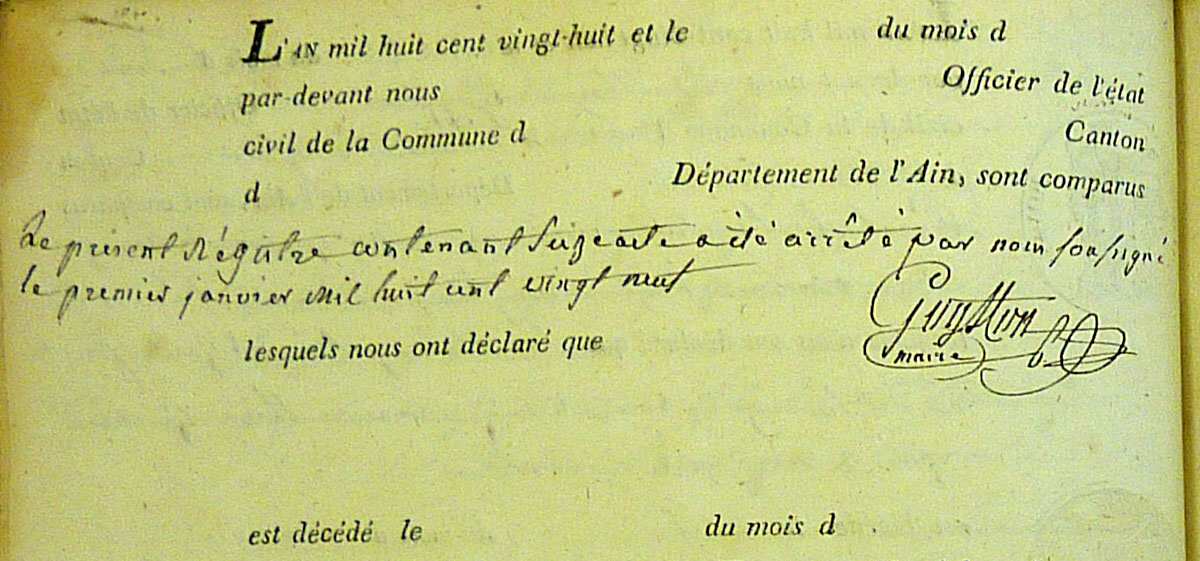 L'AN mil huit cent vingt-huit et le du mois d
par-devant nous Officier de l'état
civil de la Commune d Canton
d Département de l'Ain, sont comparus
Le présent Régistre contenant Seize acte a été arrêté par nous soussigné
le premier janvier mil huit cent vingt neuf
lesquels nous ont déclaré que
maire
est décédé le du mois d